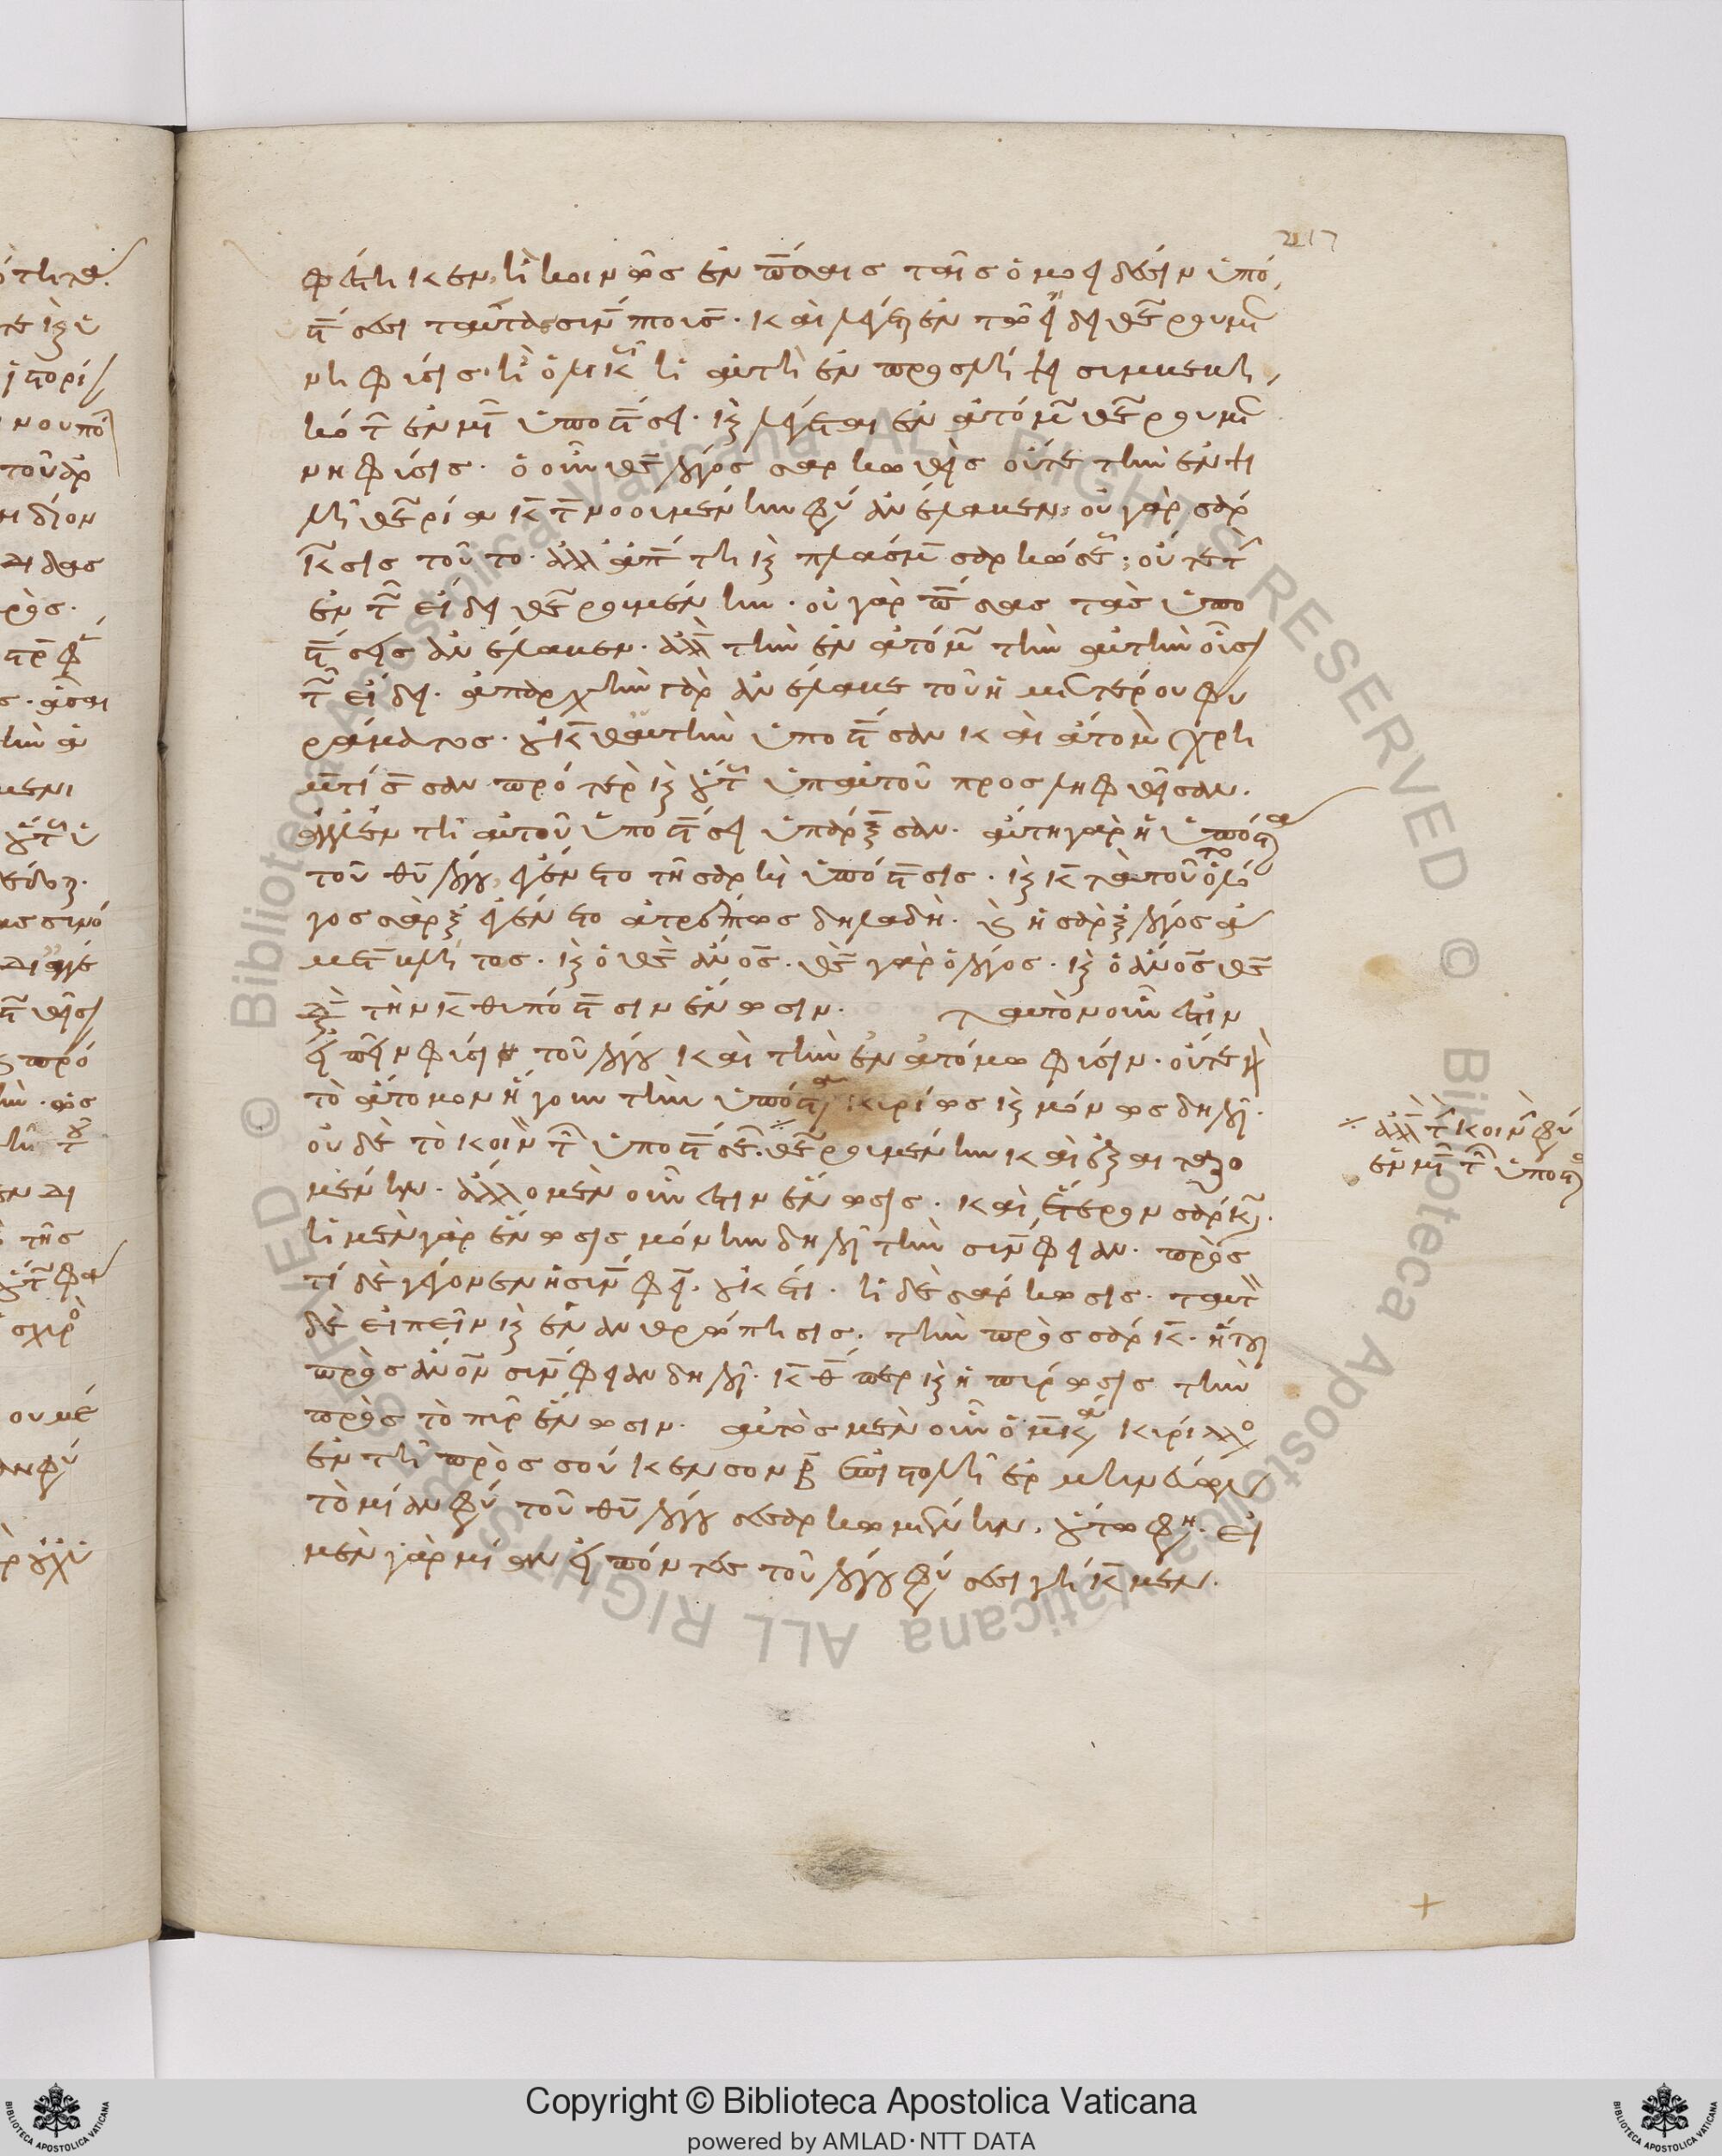 217
φέστηκεν, ἢ κοινῶς ἐν πάσαις ταῖς ὁμοειδέσιν ὑπο
στάσεσι ταύτας συνάπτουσα· καὶ λέγεται ἐν τῷ εἴδει θεωρουμέ
νη φύσις· ἢ ὁλικῶς ἡ αὐτὴ ἐν προσλήψει συμβεβη
κότων ἐν μιᾷ ὑποστάσει· καὶ λέγεται ἐν ἀτόμῳ θεωρουμέ
νη φύσις· ὁ οὖν θεὸς λόγος σαρκωθεὶς οὔτε τὴν ἐν ψι
λῇ θεωρίᾳ κατανοουμένην φύσιν ἀνέλαβεν· οὐ γὰρ σάρ
κωσις τοῦτο· ἀλλ' ἀπάτη καὶ πλάσμα σαρκώσεως· οὔτε τὴν
ἐν τῷ εἴδει θεωρουμένην· οὐ γὰρ πάσας τὰς ὑπο
στάσεις ἀνέλαβεν· ἀλλὰ τὴν ἐν ἀτόμῳ τὴν αὐτὴν οὖσαν
τῷ εἴδει· ἀπαρχὴν γὰρ ἀνέλαβε τοῦ ἡμετέρου φυ
ράματος· οὐ καθ' αὑτὴν ὑποστᾶσαν καὶ ἄτομον χρη
ματίσασαν πρότερον καὶ οὕτως ὑπ' αὐτοῦ προσληφθεῖσαν·
ἀλλ' ἐν τῇ αὐτοῦ ὑποστάσει ὑπάρξασαν· αὕτη γὰρ ἡ ὑπόστασις
τοῦ θυ λόγου, ἐγένετο τῇ σαρκὶ ὑπόστασις· καὶ κατὰ τοῦτο ὁ λό
γος σὰρξ ἐγένετο ἀτρέπτως δηλαδή· καὶ ἡ σὰρξ λόγος ἀ
μεταβλήτως· καὶ ὁ θεὸς ἄνος· θεὸς γὰρ ὁ λόγος· καὶ ὁ ἄνος θεὸς
διὰ τὴν καθ' ὑπόστασιν ἕνωσιν· ταυτὸν οὖν ἐστιν
εἰπεῖν φύσιν τοῦ λόγου καὶ τὴν ἐν ἀτόμῳ φύσιν· οὔτε γὰρ
τὸ ἄτομον ἤγουν τὴν ὑπόστασιν κυρίως καὶ μόνως δηλοῖ·
οὐδὲ τὸ κοινὸν τῶν ὑποστάσεων· θεωρουμένην καὶ ἐξεταζο
μένην· ἄλλο μὲν οὖν ἐστιν ἕνωσις· καὶ ἕτερον σάρκωσις·
ἡ μὲν γὰρ ἕνωσις μόνην δηλοῖ τὴν συνάφειαν· πρὸς
τί δὲ γέγονεν ἡ συνάφεια, οὐκέτι· ἡ δὲ σάρκωσις· ταυτὸν
δὲ εἰπεῖν καὶ ἐνανθρώπησις· τὴν πρὸς σάρκα· ἤτοι
πρὸς ἄνον συνάφειαν δηλοῖ· καθάπερ καὶ ἡ πύρωσις τὴν
πρὸς τὸ πῦρ ἕνωσιν· αὐτὸς μὲν οὖν ὁ μακάριος κύριλλος
ἐν τῇ πρὸς σούκενσον β ἐπιστολῇ ἑρμηνεύων
τὸ μίαν φύσιν τοῦ θυ λόγου σεσαρκωμένην, οὕτω φησίν· εἰ
μὲν γὰρ μίαν εἰπόντες τοῦ λόγου φύσιν σεσιγήκαμεν·
ἀλλὰ τὴν κοινὴν φύσιν
ἐν μιᾷ τῶν ὑποστάσεων
Copyright © Biblioteca Apostolica Vaticana
powered by AMLAD·NTT DATA